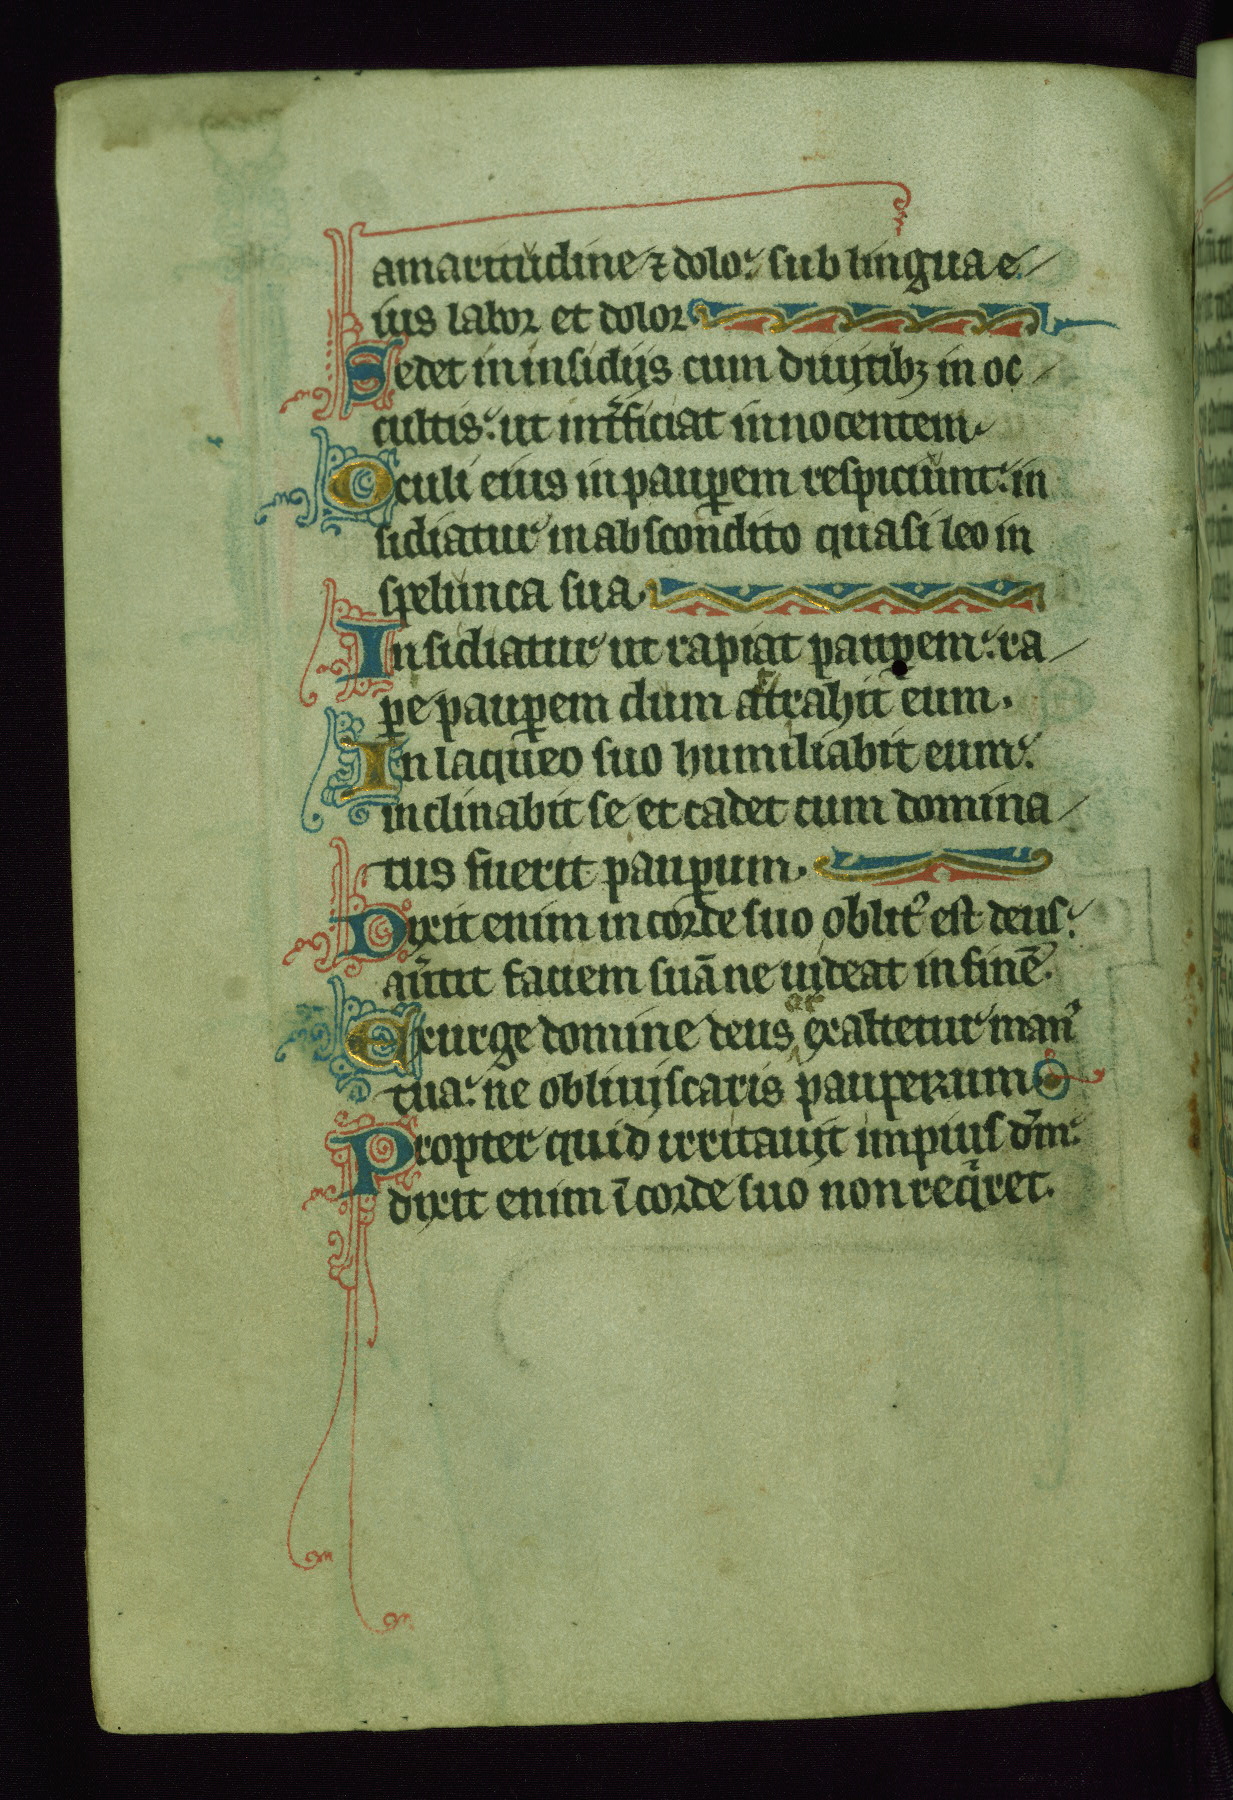 amaritudine ⁊ dolo: sub lingua e
ius labor et dolor
Sedet in insidijs cum diuitibꝫ in oc
cultis: ut int̾ficiat innocentem
Oculi eius in pauꝑem respiciunt: in
sidiatur in abscondito quasi leo in
spelunca sua
Insidiatur ut rapiat pauꝑem: ra
ꝑe pauꝑem dum attrahit eum.
In laqueo suo humiliabit eum:
inclinabit se et cadet cum domina
tus fuerit pauꝑum.
Dixit enim in corde suo oblit᾿ est deus:
au̾tit faciem suā ne uideat in finē.
Exurge domine deus exaltetur man᾿
tua: ne obliuiscaris pauperum
Propter quid irritauit impius dm̄:
dixit enim ī corde suo non reqͥret.